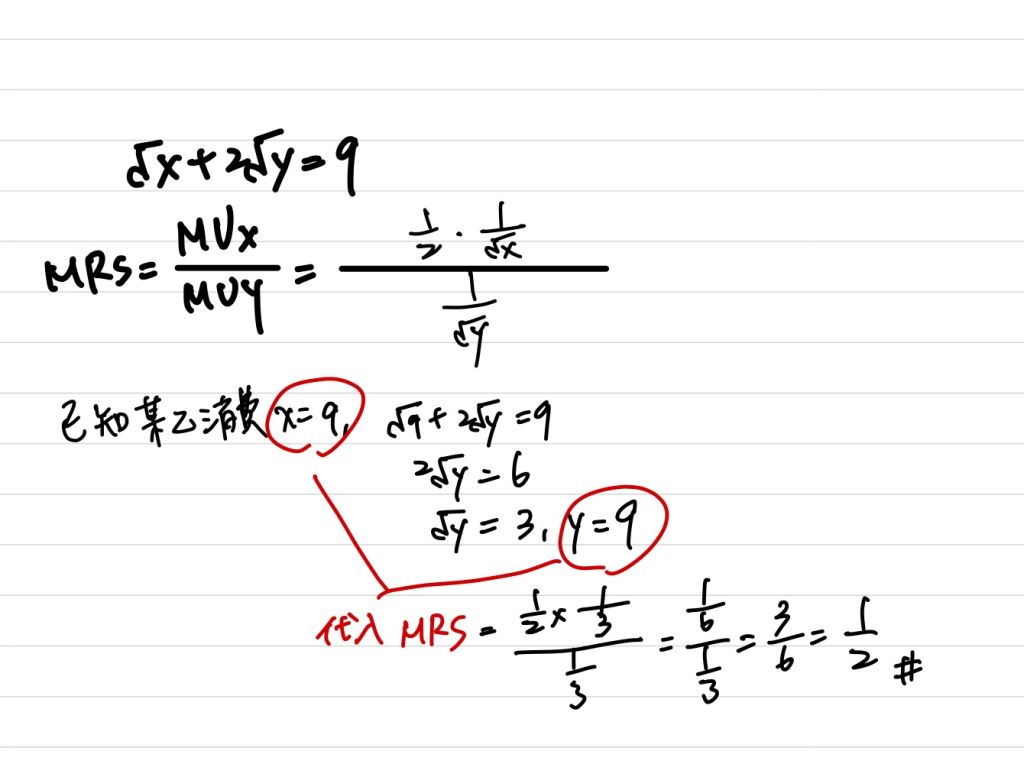 √x+2√y=9
MRS= MUx/MUy = (1/2 · 1/√x)/(1/√y)
已知某乙消費 x=9, √9+2√y=9
2√y=6
√y=3, y=9
代入 MRS = (1/2 x 1/3)/(1/3) = (1/6)/(1/3) = 3/6 = 1/2 #